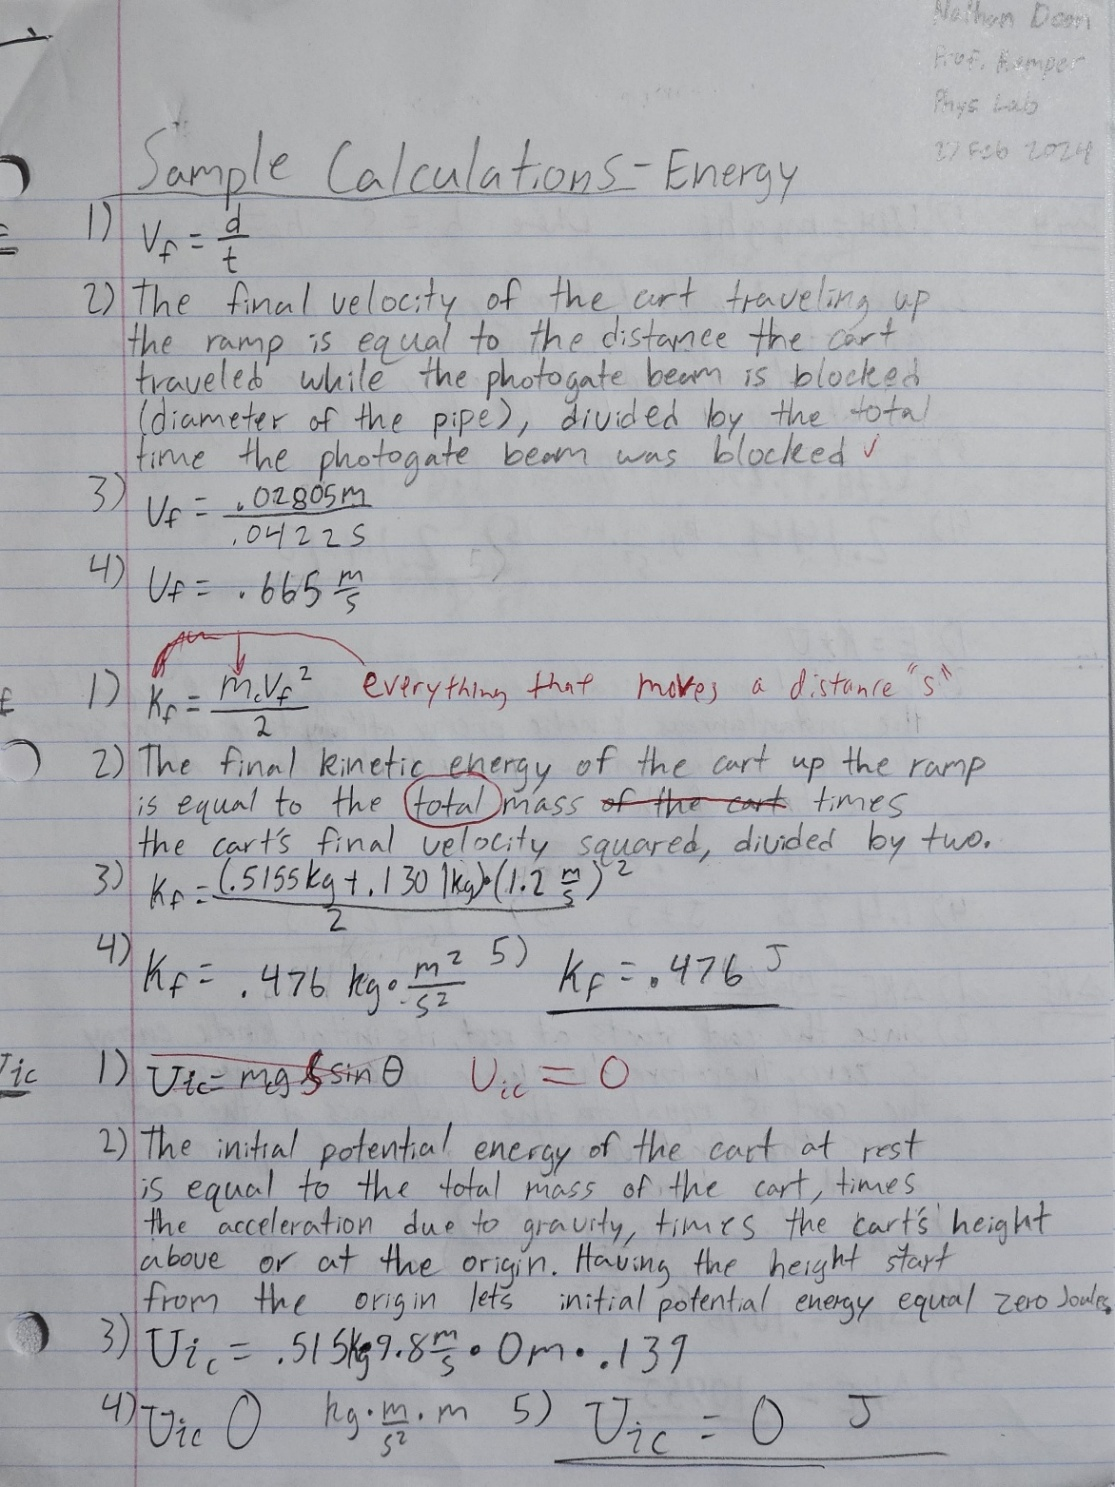 Nathan Dean
Prof. Kemper
Phys Lab
27 Feb 2024
Sample Calculations - Energy
1) Vf = d/t
2) The final velocity of the cart traveling up
the ramp is equal to the distance the cart
traveled while the photogate beam is blocked
(diameter of the pipe), divided by the total
time the photogate beam was blocked ✓
3) Vf = .02805m / .0422s
4) Vf = .665 m/s
1) Kf = mcVf²/2 everything that moves a distance "s"
2) The final kinetic energy of the cart up the ramp
is equal to the total mass of the cart times
the cart's final velocity squared, divided by two.
3) Kf = (.5155kg + .1301kg)•(1.2 m/s)² / 2
4) Kf = .476 kg• m²/s² 5) Kf = .476 J
Uic 1) Uic = mcg s sinθ Uic = 0
2) The initial potential energy of the cart at rest
is equal to the total mass of the cart, times
the acceleration due to gravity, times the cart's height
above or at the origin. Having the height start
from the origin lets initial potential energy equal zero Joules.
3) Uic = .515kg 9.8 m/s • 0m • .139
4) Uic 0 kg • m/s² • m 5) Uic = 0 J